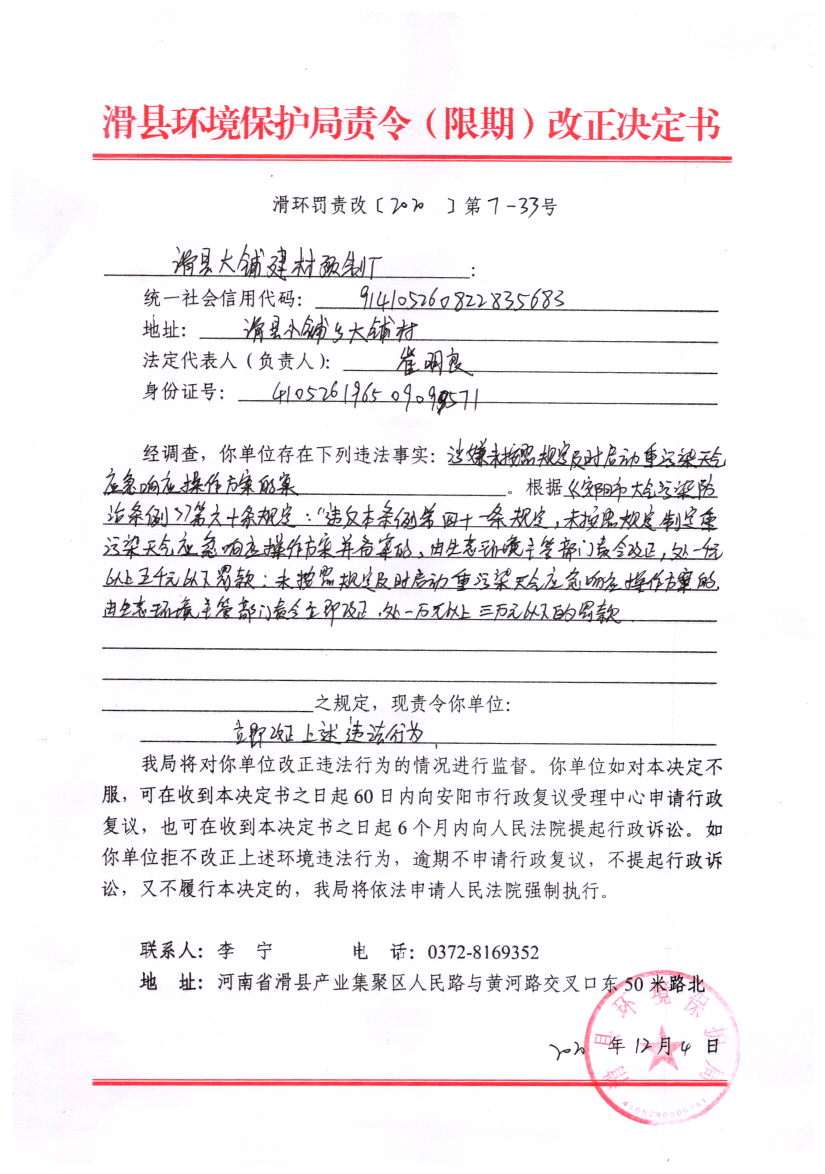 滑县环境保护局责令（限期）改正决定书
滑环罚责改〔2020 〕第7-33号
滑县大铺建材预制厂：
统一社会信用代码：914105260822835683
地址：滑县小铺乡大铺村
法定代表人（负责人）：崔明良
身份证号：
经调查，你单位存在下列违法事实：涉嫌未按照规定及时启动重污染天气
应急响应操作方案的案。根据《安阳市大气污染防
治条例》第六十条规定：“违反本条例第四十一条规定，未按照规定制定重
污染天气应急响应操作方案并备案的，由生态环境主管部门责令改正，处一千元
以上五千元以下罚款；未按照规定及时启动重污染天气应急响应操作方案的
由生态环境主管部门责令立即改正，处一万元以上三万元以下的罚款
之规定，现责令你单位：
立即改正上述违法行为
我局将对你单位改正违法行为的情况进行监督。你单位如对本决定不
服，可在收到本决定书之日起60日内向安阳市行政复议受理中心申请行政
复议，也可在收到本决定书之日起6个月内向人民法院提起行政诉讼。如
你单位拒不改正上述环境违法行为，逾期不申请行政复议，不提起行政诉
讼，又不履行本决定的，我局将依法申请人民法院强制执行。
联系人：李 宁 电 话：0372-8169352
地 址：河南省滑县产业集聚区人民路与黄河路交叉口东50米路北
滑县环境保护局
2020 年 12月 4 日